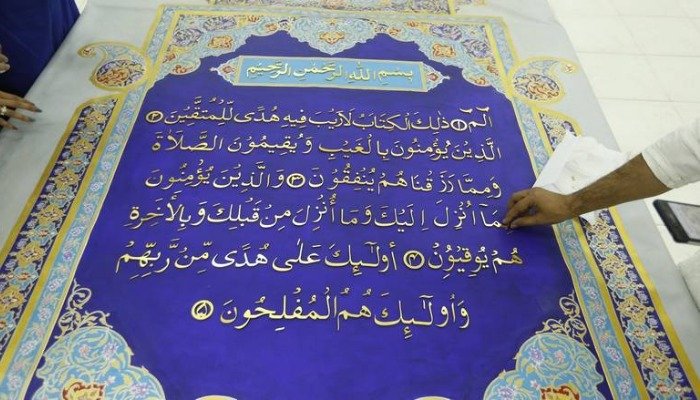 بِسْمِ اللّٰهِ الرَّحْمٰنِ الرَّحِيْمِ
الٓمّٓ ۝١ ذٰلِكَ الْكِتَابُ لَارَيْبَ فِيْهِ هُدًى لِّلْمُتَّقِيْنَ ۝٢
الَّذِيْنَ يُؤْمِنُوْنَ بِالْغَيْبِ وَيُقِيْمُوْنَ الصَّلَاةَ
وَمِمَّا رَزَقْنَاهُمْ يُنْفِقُوْنَ ۝٣ وَالَّذِيْنَ يُؤْمِنُوْنَ
بِمَآ اُنْزِلَ اِلَيْكَ وَمَآ اُنْزِلَ مِنْ قَبْلِكَ وَبِالْاٰخِرَةِ
هُمْ يُوْقِنُوْنَ ۝٤ أُولٰٓئِكَ عَلٰى هُدًى مِّنْ رَّبِّهِمْ
وَأُولٰٓئِكَ هُمُ الْمُفْلِحُوْنَ ۝٥